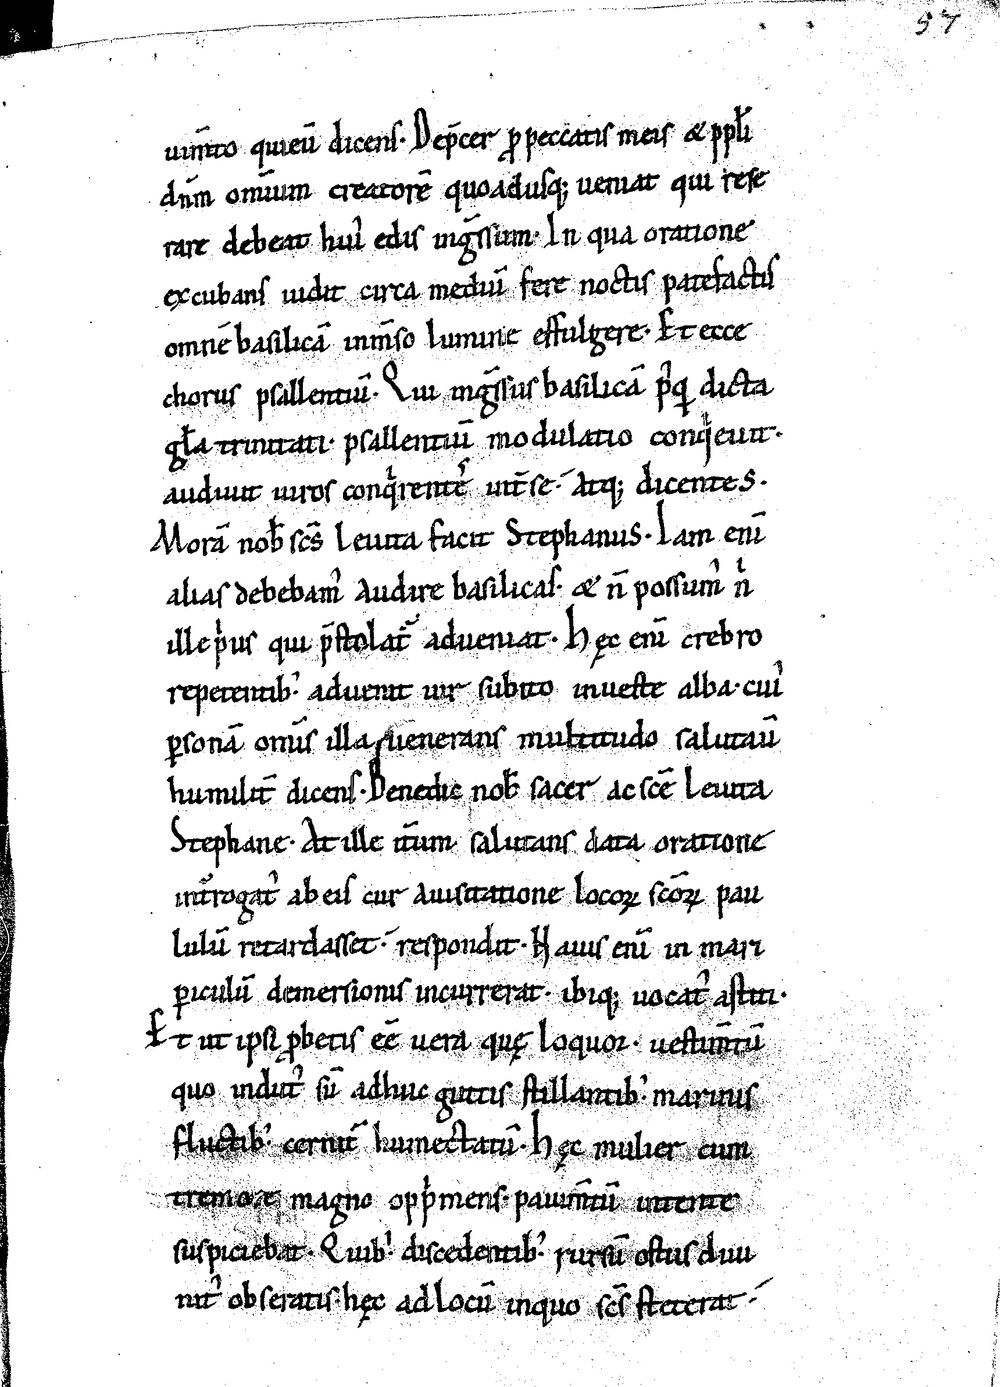 57
uim̄to quieuī dicens· Dep̄cer ꝓ peccatis meis & ppl̄i
dn̄m omīum creatorē quoadusq; ueniat qui rese
rare debeat hui᾽ edis ing̃ssum· In qua oratione
excubans uidit circa mediū fere noctis patefactis
omnē basilicā inm̄so lumine effulgere· Et ecce
chorus psallentiū· Qui ing̃ssus basilicā p᾽q̨ dicta
gl̄a trinitati· psallentiū modulatio conqͥeuit·
audiuit uiros conq̄rentes int̄ se· Atq; dicentes·
Morā nob̄ sc̄s Leuita facit Stephanus· Iam enī
alias debebam᾽ Audire basilicas· & n̄ possum᾽ nͥ
ille pͥus qui p̄stolat᾽ adueniat· hęc enī crebro
repetentib᾽ aduenit uir subito inueste alba· cui᾽
ꝑsonā omīs illa uenerans multitudo salutauī
humilit̄ dicens· Benedic nob̄ sacer ac sc̄e Leuita
Stephane· At ille it̄um salutans data oratione
int̄rogat᾽ ab eis cur Auisitatione locoꝝ sc̄oꝝ pau
lulū retardasset· respondit· Nauis enī in mari
ꝑiculū demersionis incurrerat· ibiq; uocat᾽ astiti·
Et ut ipsi ꝓbetis eē uera quę loquor· uestim̄tū
quo indut᾽ sū adhuc guttis stillantib᾽ marinis
fluctib᾽ cernit᾽ humectatū· hęc mulier cum
tremore magno oppͥmens· pauim̄tū intente
suspiciebat· Quib᾽ discedentib᾽ rursū ostiis diui
nit᾽ obseratis· hęc ad locū inquo sc̄s steterat·